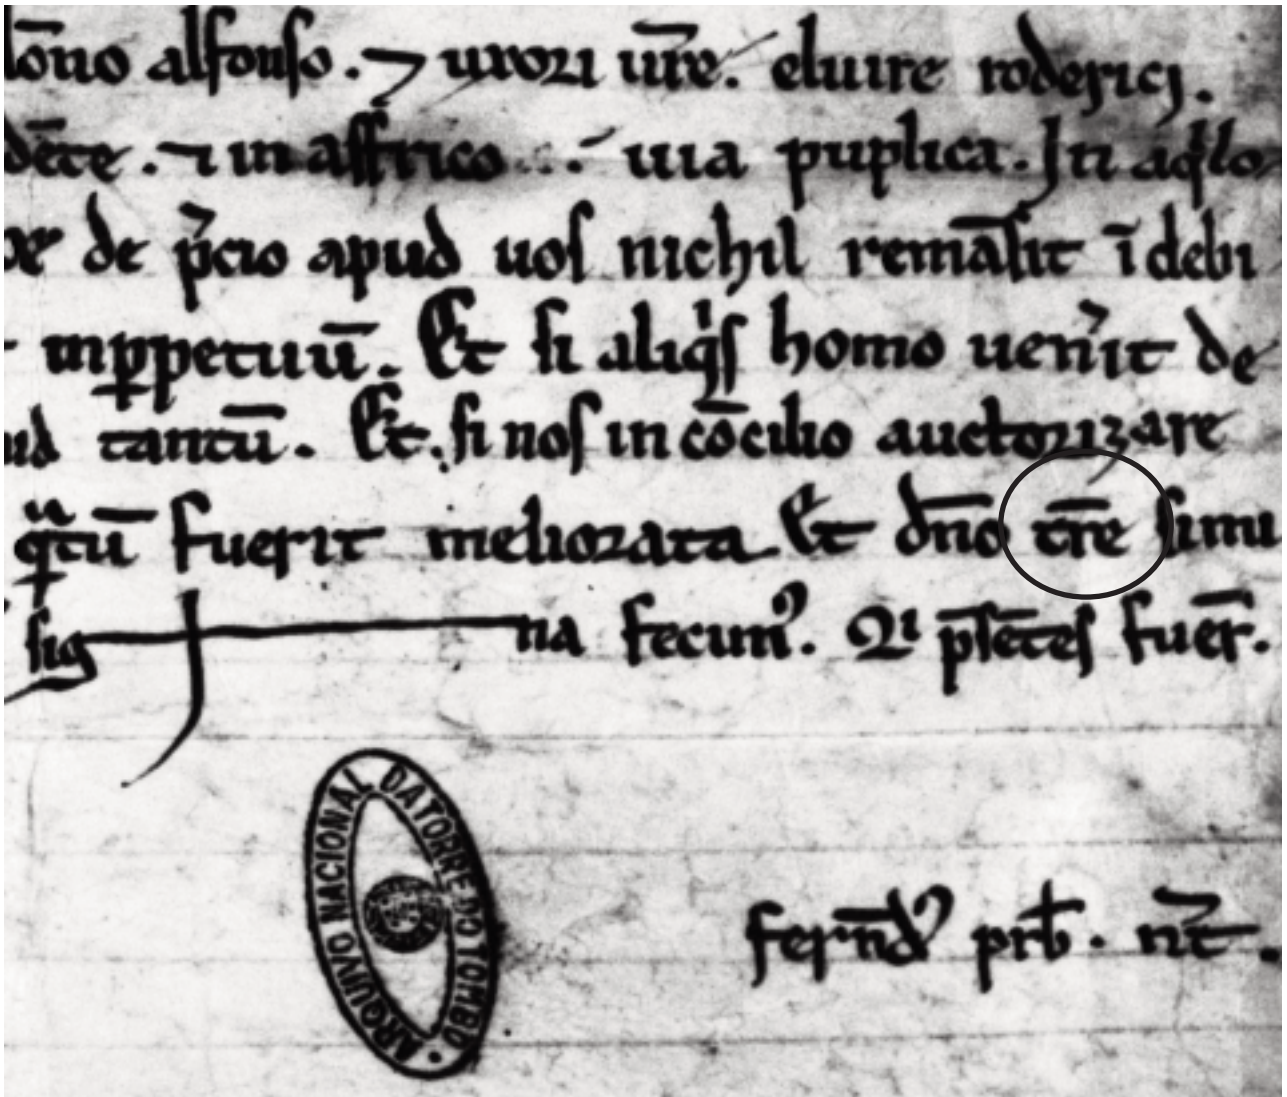 dōno alfonso . ⁊ uxori ur̄e . eluire roderici .
dēte . ⁊ in affrico . . . uia puplica . In aqⁱlo
de p̄cio apud uos nichil remāsit ī debi
inꝑpetuū . Et si aliqⁱs homo uen̄it de
ud tantū . Et . si nos in cōcilio auctorizare
qͣtū fuerit meliorata Et dn̄o tr̄e simi
sig na fecim᾽ . Qi p̄sētes fuer̄ .
fern̄d᾽ prb̄ . nt̄ .
ARQUIVO NACIONAL DA TORRE DO TOMBO